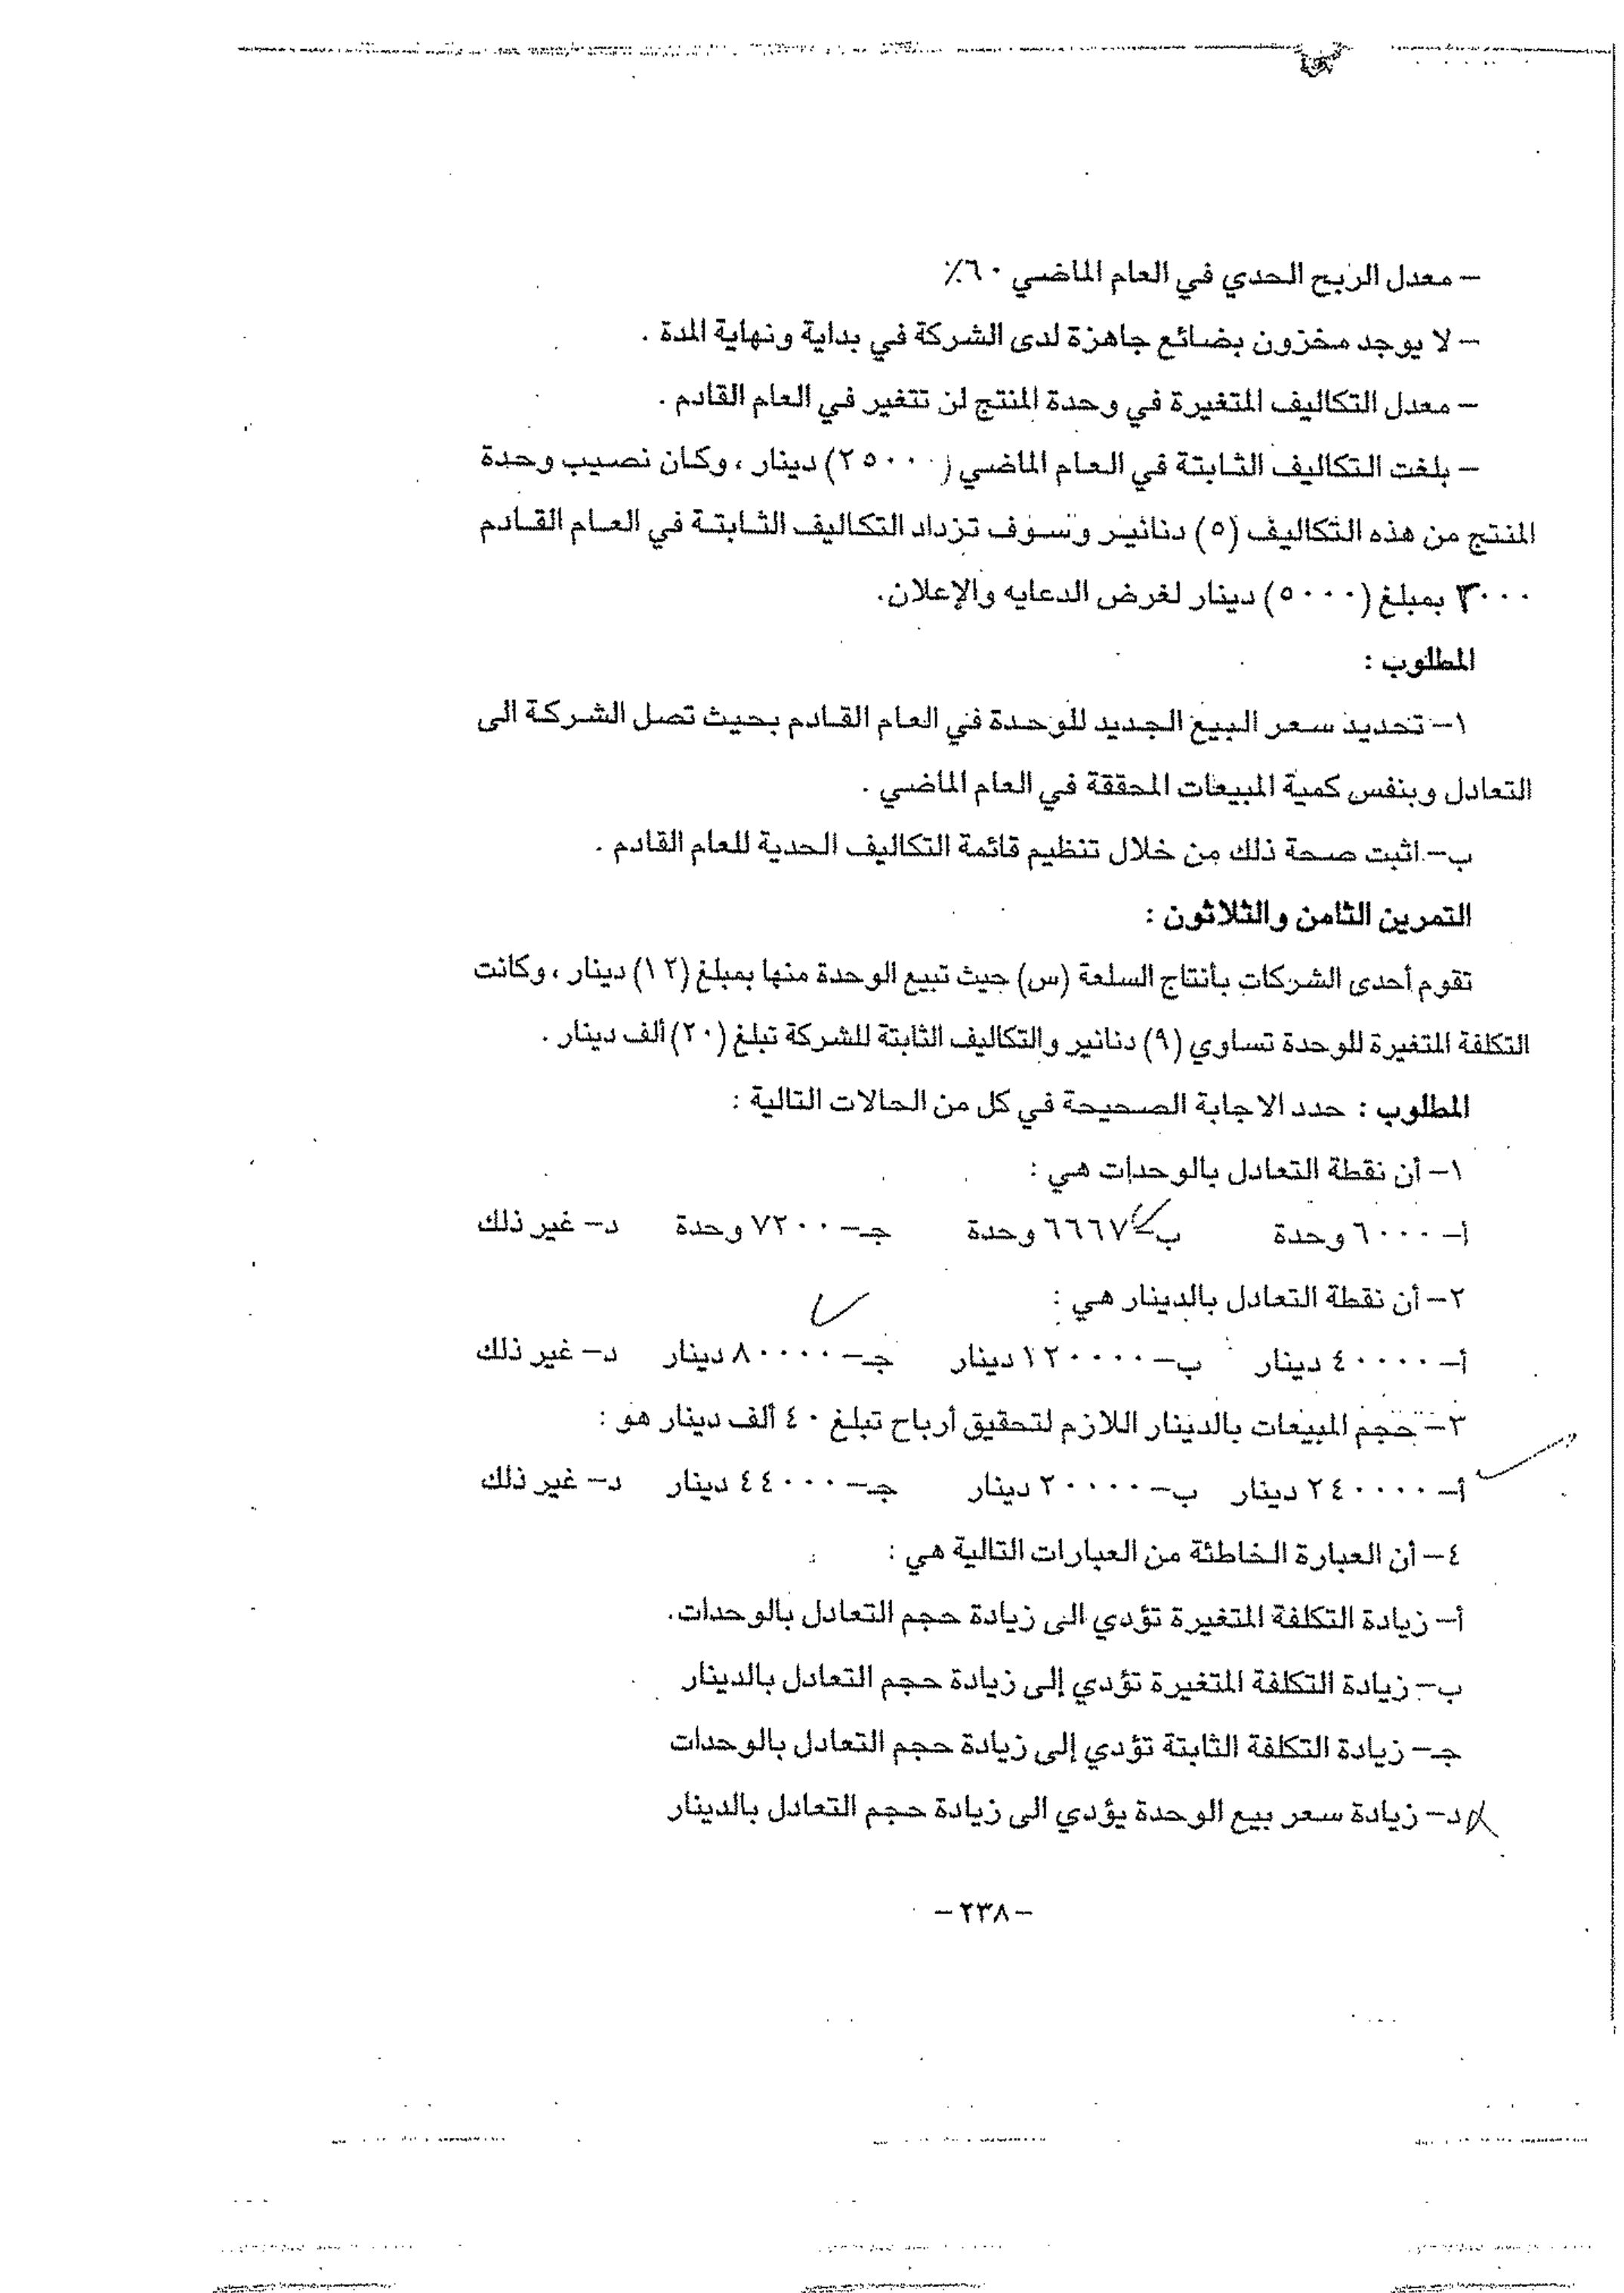 – معدل الربح الحدي في العام الماضي ٦٠٪
– لا يوجد مخزون بضائع جاهزة لدى الشركة في بداية ونهاية المدة .
– معدل التكاليف المتغيرة في وحدة المنتج لن تتغير في العام القادم .
– بلغت التكاليف الثابتة في العام الماضي (٢٥٠٠٠) دينار ، وكان نصيب وحدة
المنتج من هذه التكاليف (٥) دنانير وسوف تزداد التكاليف الثابتة في العام القادم
٣٠٠٠ بمبلغ (٥٠٠٠) دينار لغرض الدعايه والإعلان.
المطلوب :
١– تحديد سعر البيع الجديد للوحدة في العام القادم بحيث تصل الشركة الى
التعادل وبنفس كمية المبيعات المحققة في العام الماضي .
ب– اثبت صحة ذلك من خلال تنظيم قائمة التكاليف الحدية للعام القادم .
التمرين الثامن والثلاثون :
تقوم أحدى الشركات بأنتاج السلعة (س) حيث تبيع الوحدة منها بمبلغ (١٢) دينار ، وكانت
التكلفة المتغيرة للوحدة تساوي (٩) دنانير والتكاليف الثابتة للشركة تبلغ (٢٠) ألف دينار .
المطلوب : حدد الاجابة الصحيحة في كل من الحالات التالية :
١– أن نقطة التعادل بالوحدات هي :
أ– ٦٠٠٠ وحدة ب– ٦٦٦٧ وحدة جـ– ٧٢٠٠ وحدة د– غير ذلك
٢– أن نقطة التعادل بالدينار هي :
أ– ٤٠٠٠٠ دينار ب– ١٢٠٠٠٠ دينار جـ– ٨٠٠٠٠ دينار د– غير ذلك
٣– حجم المبيعات بالدينار اللازم لتحقيق أرباح تبلغ ٤٠ ألف دينار هو :
أ– ٢٤٠٠٠٠ دينار ب– ٢٠٠٠٠ دينار جـ– ٤٤٠٠٠ دينار د– غير ذلك
٤– أن العبارة الخاطئة من العبارات التالية هي :
أ– زيادة التكلفة المتغيرة تؤدي الى زيادة حجم التعادل بالوحدات.
ب– زيادة التكلفة المتغيرة تؤدي إلى زيادة حجم التعادل بالدينار
جـ– زيادة التكلفة الثابتة تؤدي إلى زيادة حجم التعادل بالوحدات
د– زيادة سعر بيع الوحدة يؤدي الى زيادة حجم التعادل بالدينار
– ٢٣٨ –